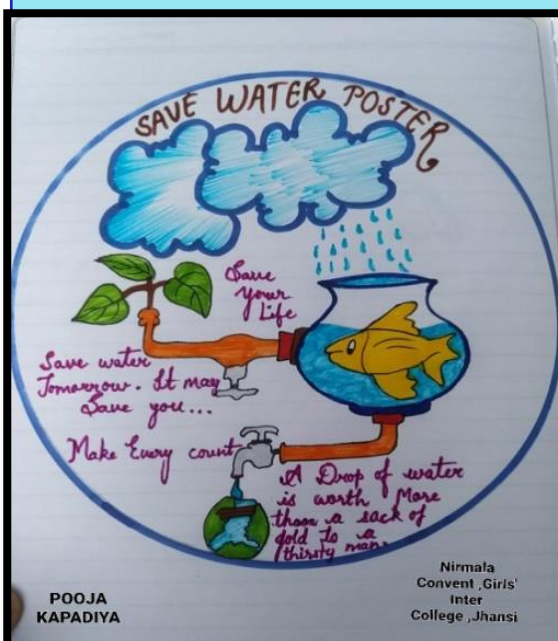 SAVE WATER POSTER
Save
Your
Life
Save water
Tomorrow. It may
Save you...
Make Every count
A Drop of water
is worth More
than a sack of
gold to a
thirsty man.
POOJA
KAPADIYA
Nirmala
Convent ,Girls'
Inter
College ,Jhansi